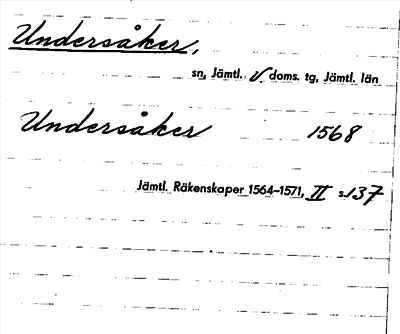 Undersåker,
sn, Jämtl. V. doms. tg, Jämtl. län
Undersåker 1568
Jämtl. Räkenskaper 1564–1571, II s. 137